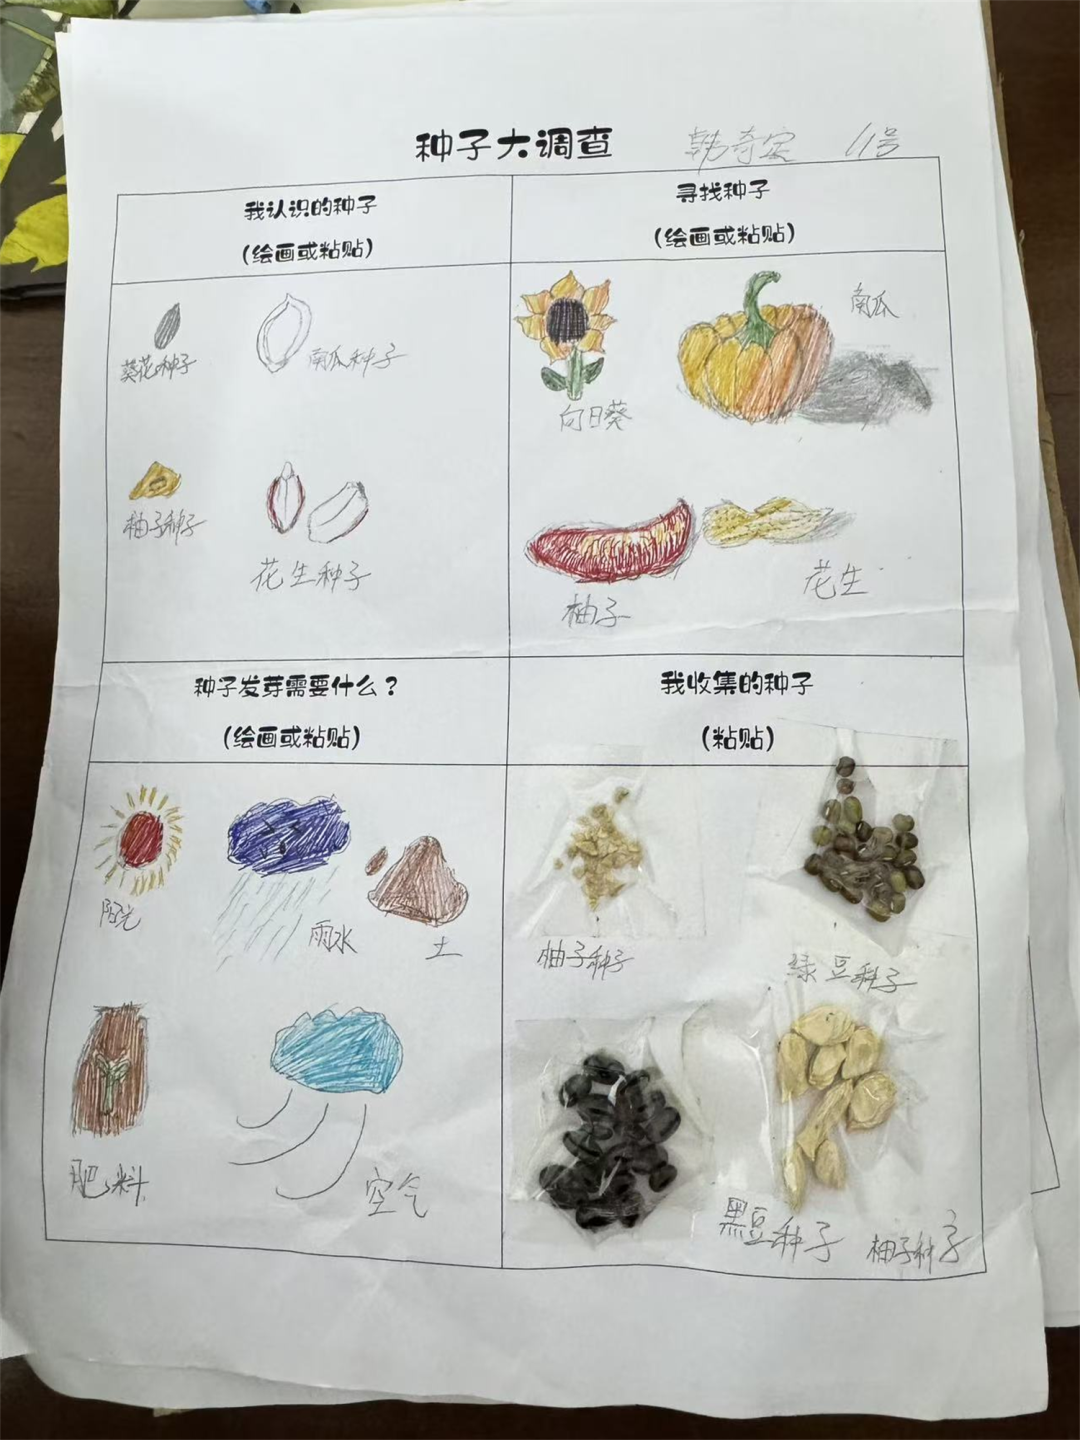 种子大调查 韩奇安 11号
我认识的种子
(绘画或粘贴)
寻找种子
(绘画或粘贴)
葵花种子
南瓜种子
柚子种子
花生种子
向日葵
南瓜
柚子
花生
种子发芽需要什么？
(绘画或粘贴)
我收集的种子
(粘贴)
阳光
雨水
土
肥料
空气
柚子种子
绿豆种子
黑豆种子
柚子种子